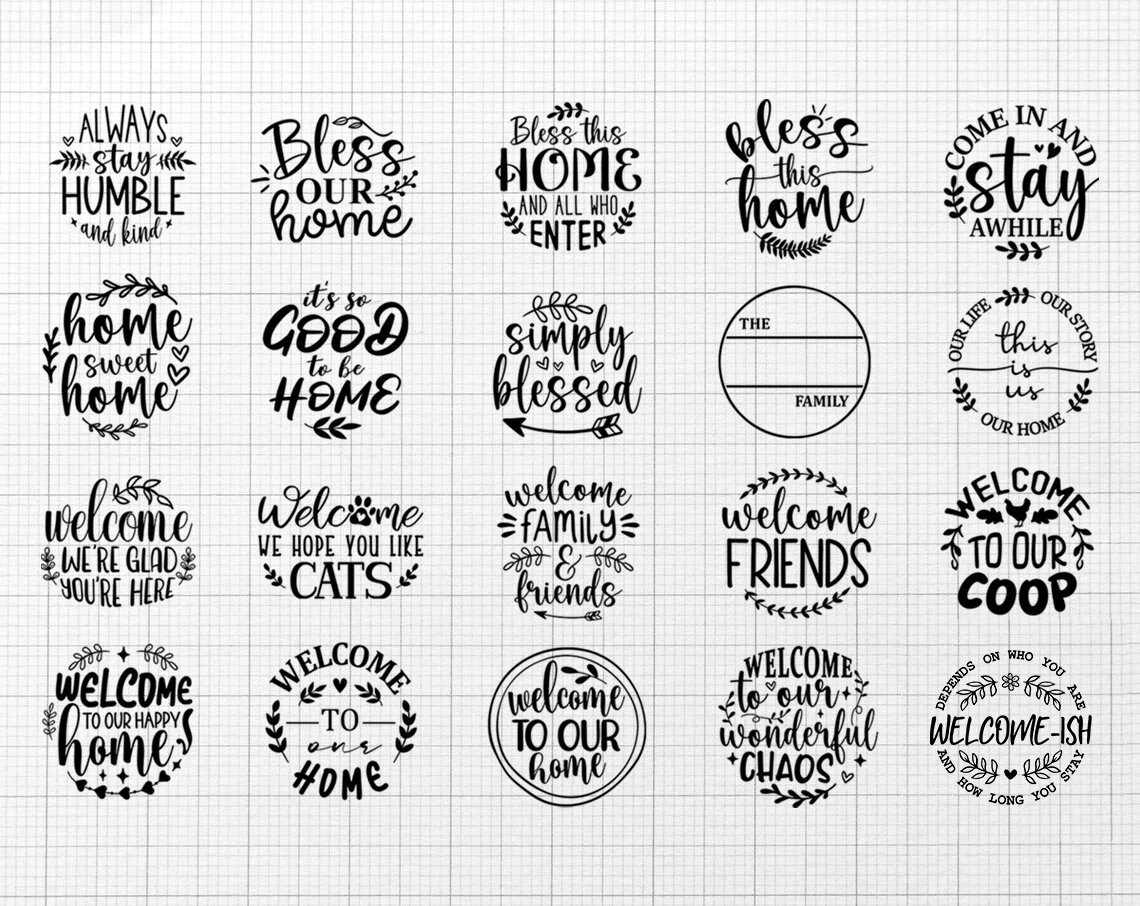 ALWAYS
stay
HUMBLE
and kind
Bless
OUR
home
Bless this
HOME
AND ALL WHO
ENTER
bless
this
home
COME IN AND
stay
AWHILE
home
sweet
home
it's so
GOOD
to be
HOME
simply
blessed
THE
FAMILY
OUR LIFE
OUR STORY
this
is
us
OUR HOME
welcome
WE'RE GLAD
YOU'RE HERE
Welcome
WE HOPE YOU LIKE
CATS
welcome
FAMILY
&
friends
welcome
FRIENDS
WELCOME
TO OUR
COOP
WELCOME
TO OUR HAPPY
home
WELCOME
TO
our
HOME
welcome
TO OUR
home
WELCOME
to our
wonderful
CHAOS
DEPENDS ON WHO YOU ARE
WELCOME-ISH
AND HOW LONG YOU STAY